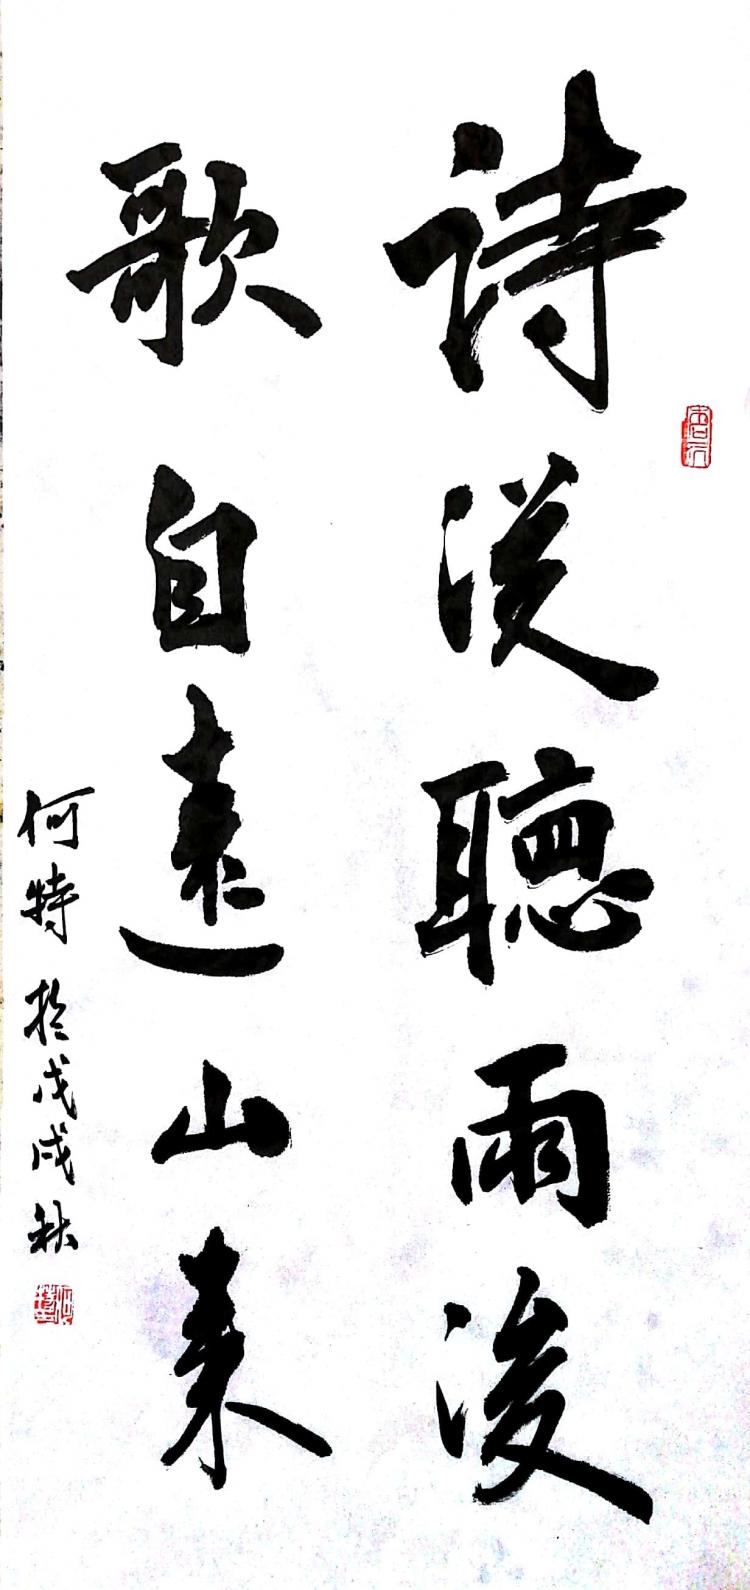 詩從聽雨後
歌自遠山來
何特於戊戌秋